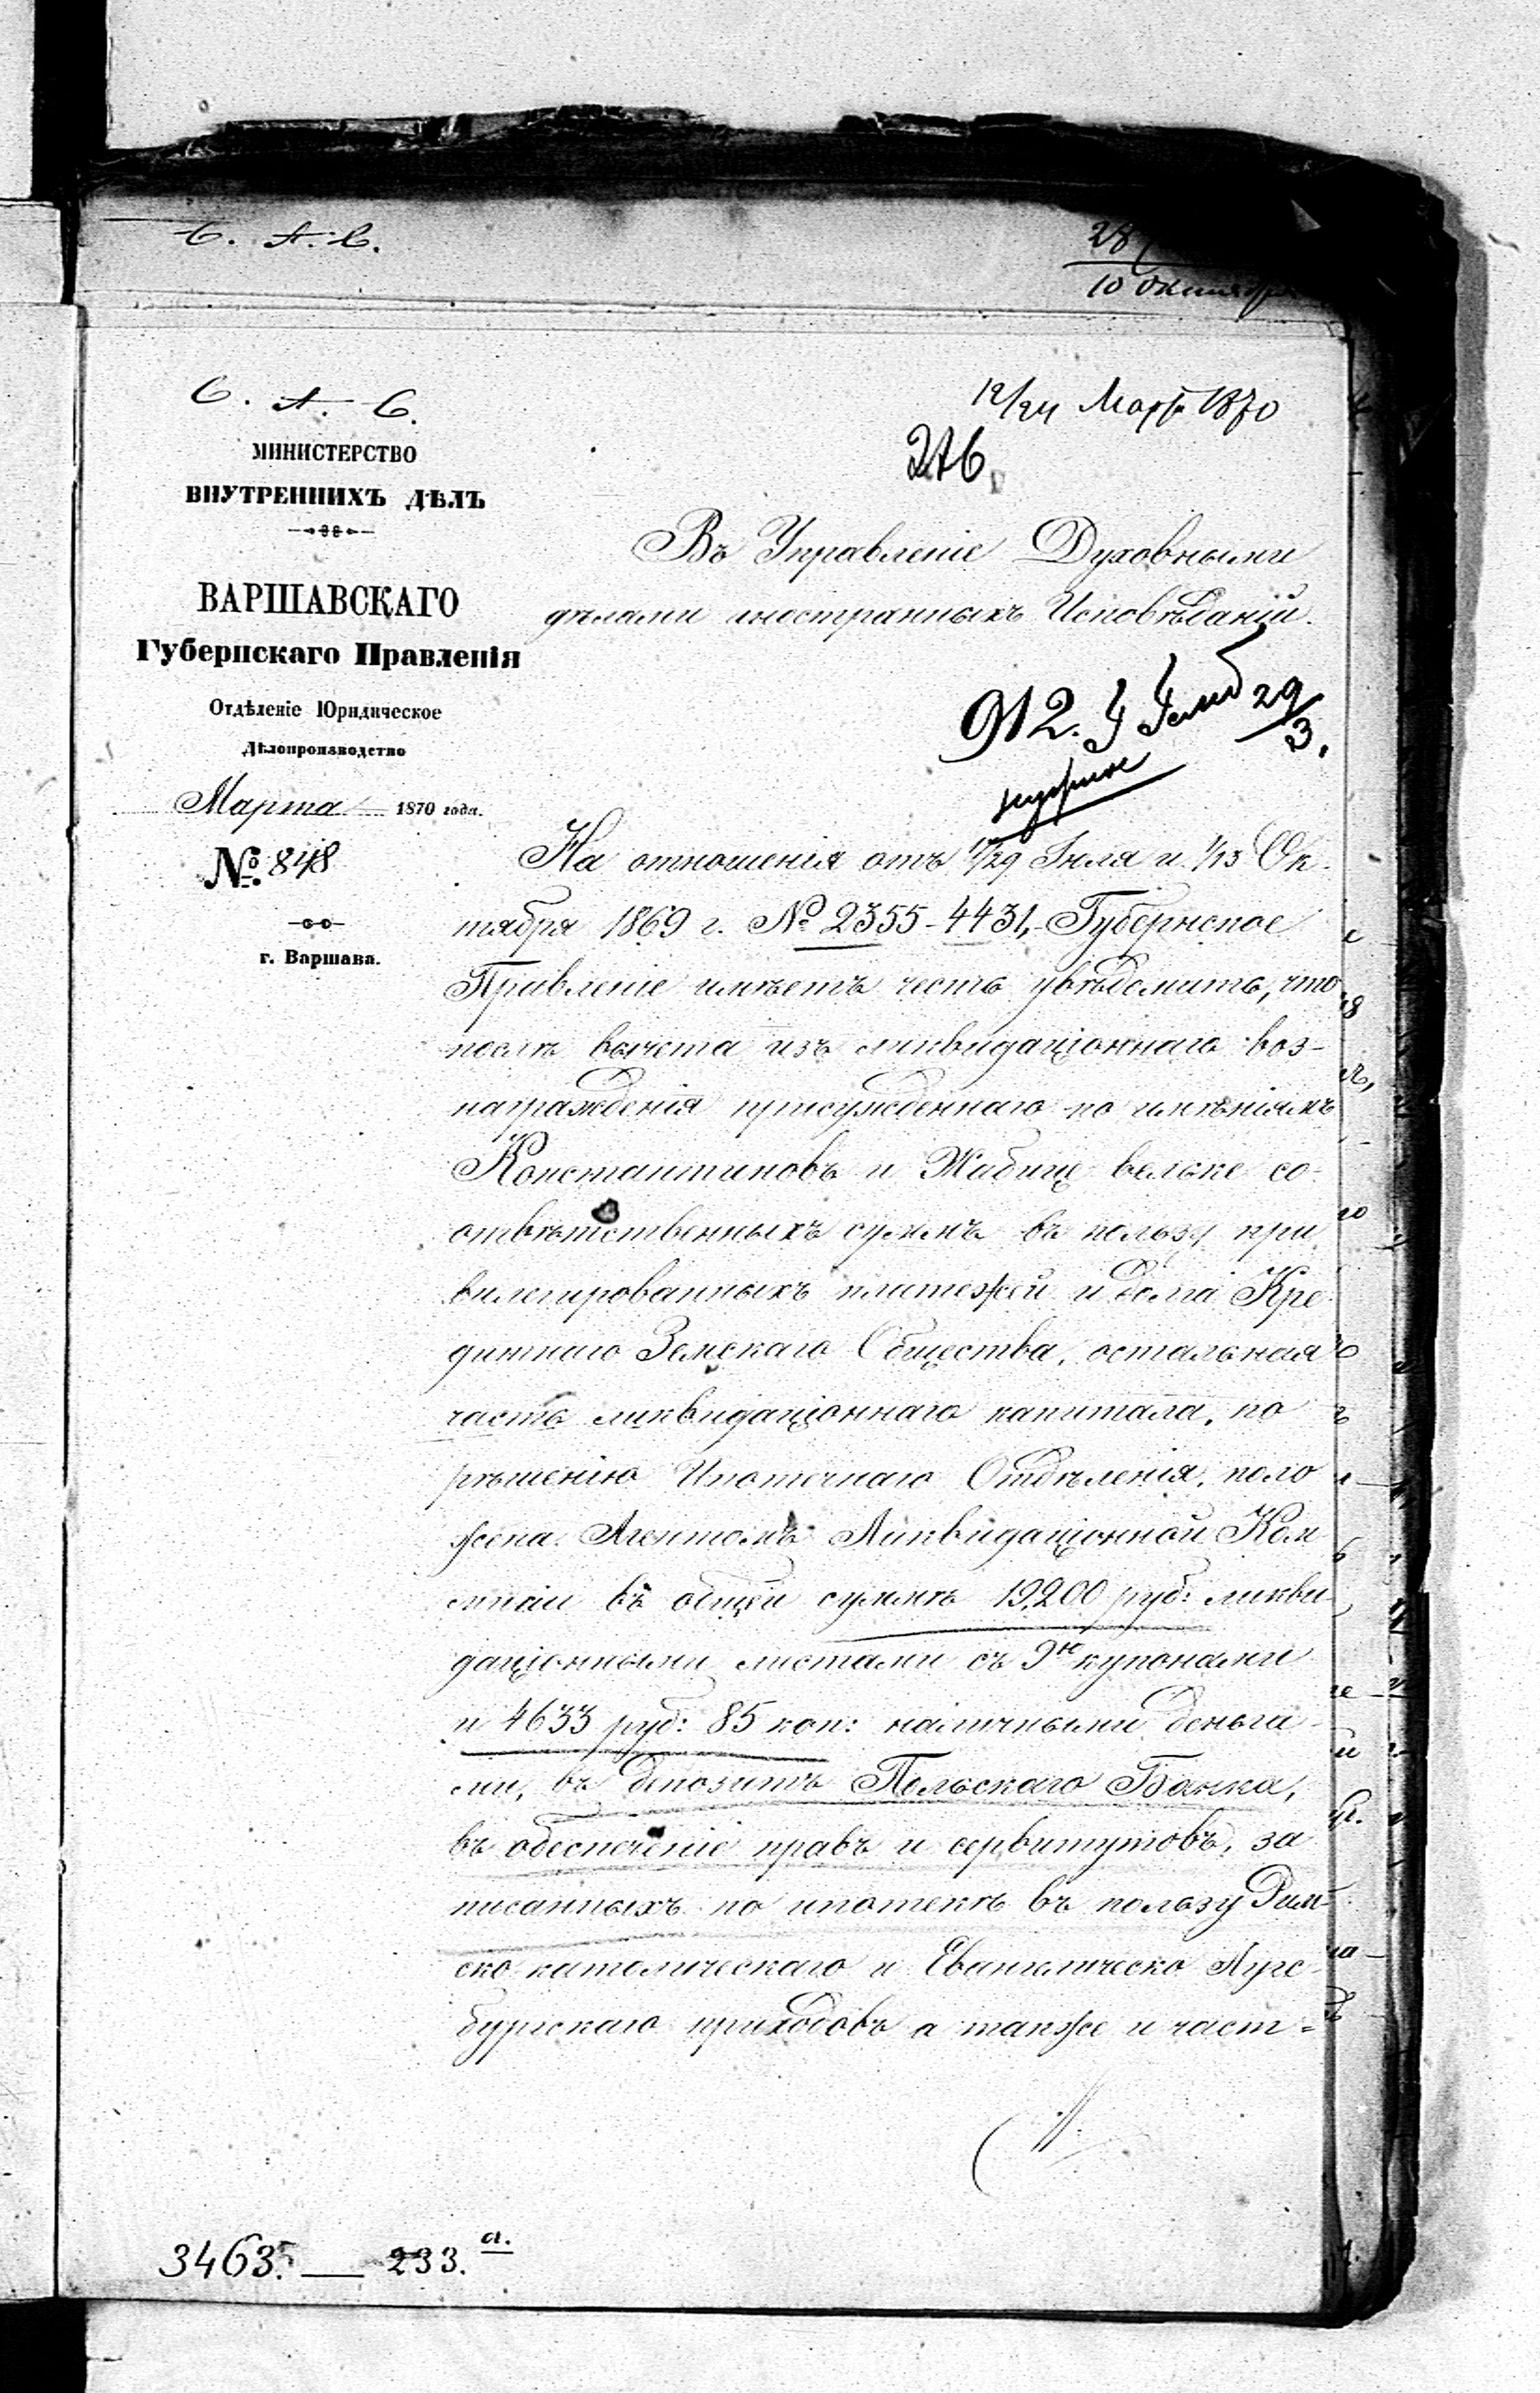 С. А. С.
28
10 Октября
С. А. С.
12/24 Март 1870
276
МИНИСТЕРСТВО
ВНУТРЕННИХЪ ДѢЛЪ
ВАРШАВСКАГО
Губернскаго Правленія
Отдѣленіе Юридическое
Дѣлопроизводство
Марта 1870 года.
№ 848
г. Варшава.
Въ Управленіе Духовными
дѣлами иностранныхъ Исповѣданій.
912.
29/3.
На отношенія отъ 17/29 Іюля и 1/13 Ок-
тября 1869 г. № 2355-4431, Губернское
Правленіе имѣетъ честь увѣдомить, что
послѣ вычета изъ ликвидаціоннаго воз-
награжденія присужденнаго по имѣніямъ
Константиновъ и Жабице вельке со-
отвѣтственныхъ суммъ въ пользу при
вилегированныхъ платежей и долга Кре
дитнаго Земскаго Общества, остальная
часть ликвидаціоннаго капитала, по
рѣшенію Ипотечнаго Отдѣленія, поло
жена Агентомъ Ликвидаціонной Ком
мисіи въ общей суммѣ 19,200 руб: ликви-
даціонными листами съ 9ю купонами
и 4633 руб: 85 коп: наличными деньга-
ми, въ депозитъ Польскаго Банка,
въ обеспеченіе правъ и сервитутовъ, за
писанныхъ по ипотекѣ въ пользу Рим-
ско католическаго и Евангелическо Аугс-
бургскаго приходовъ а также и част-
3463. — 233. а.